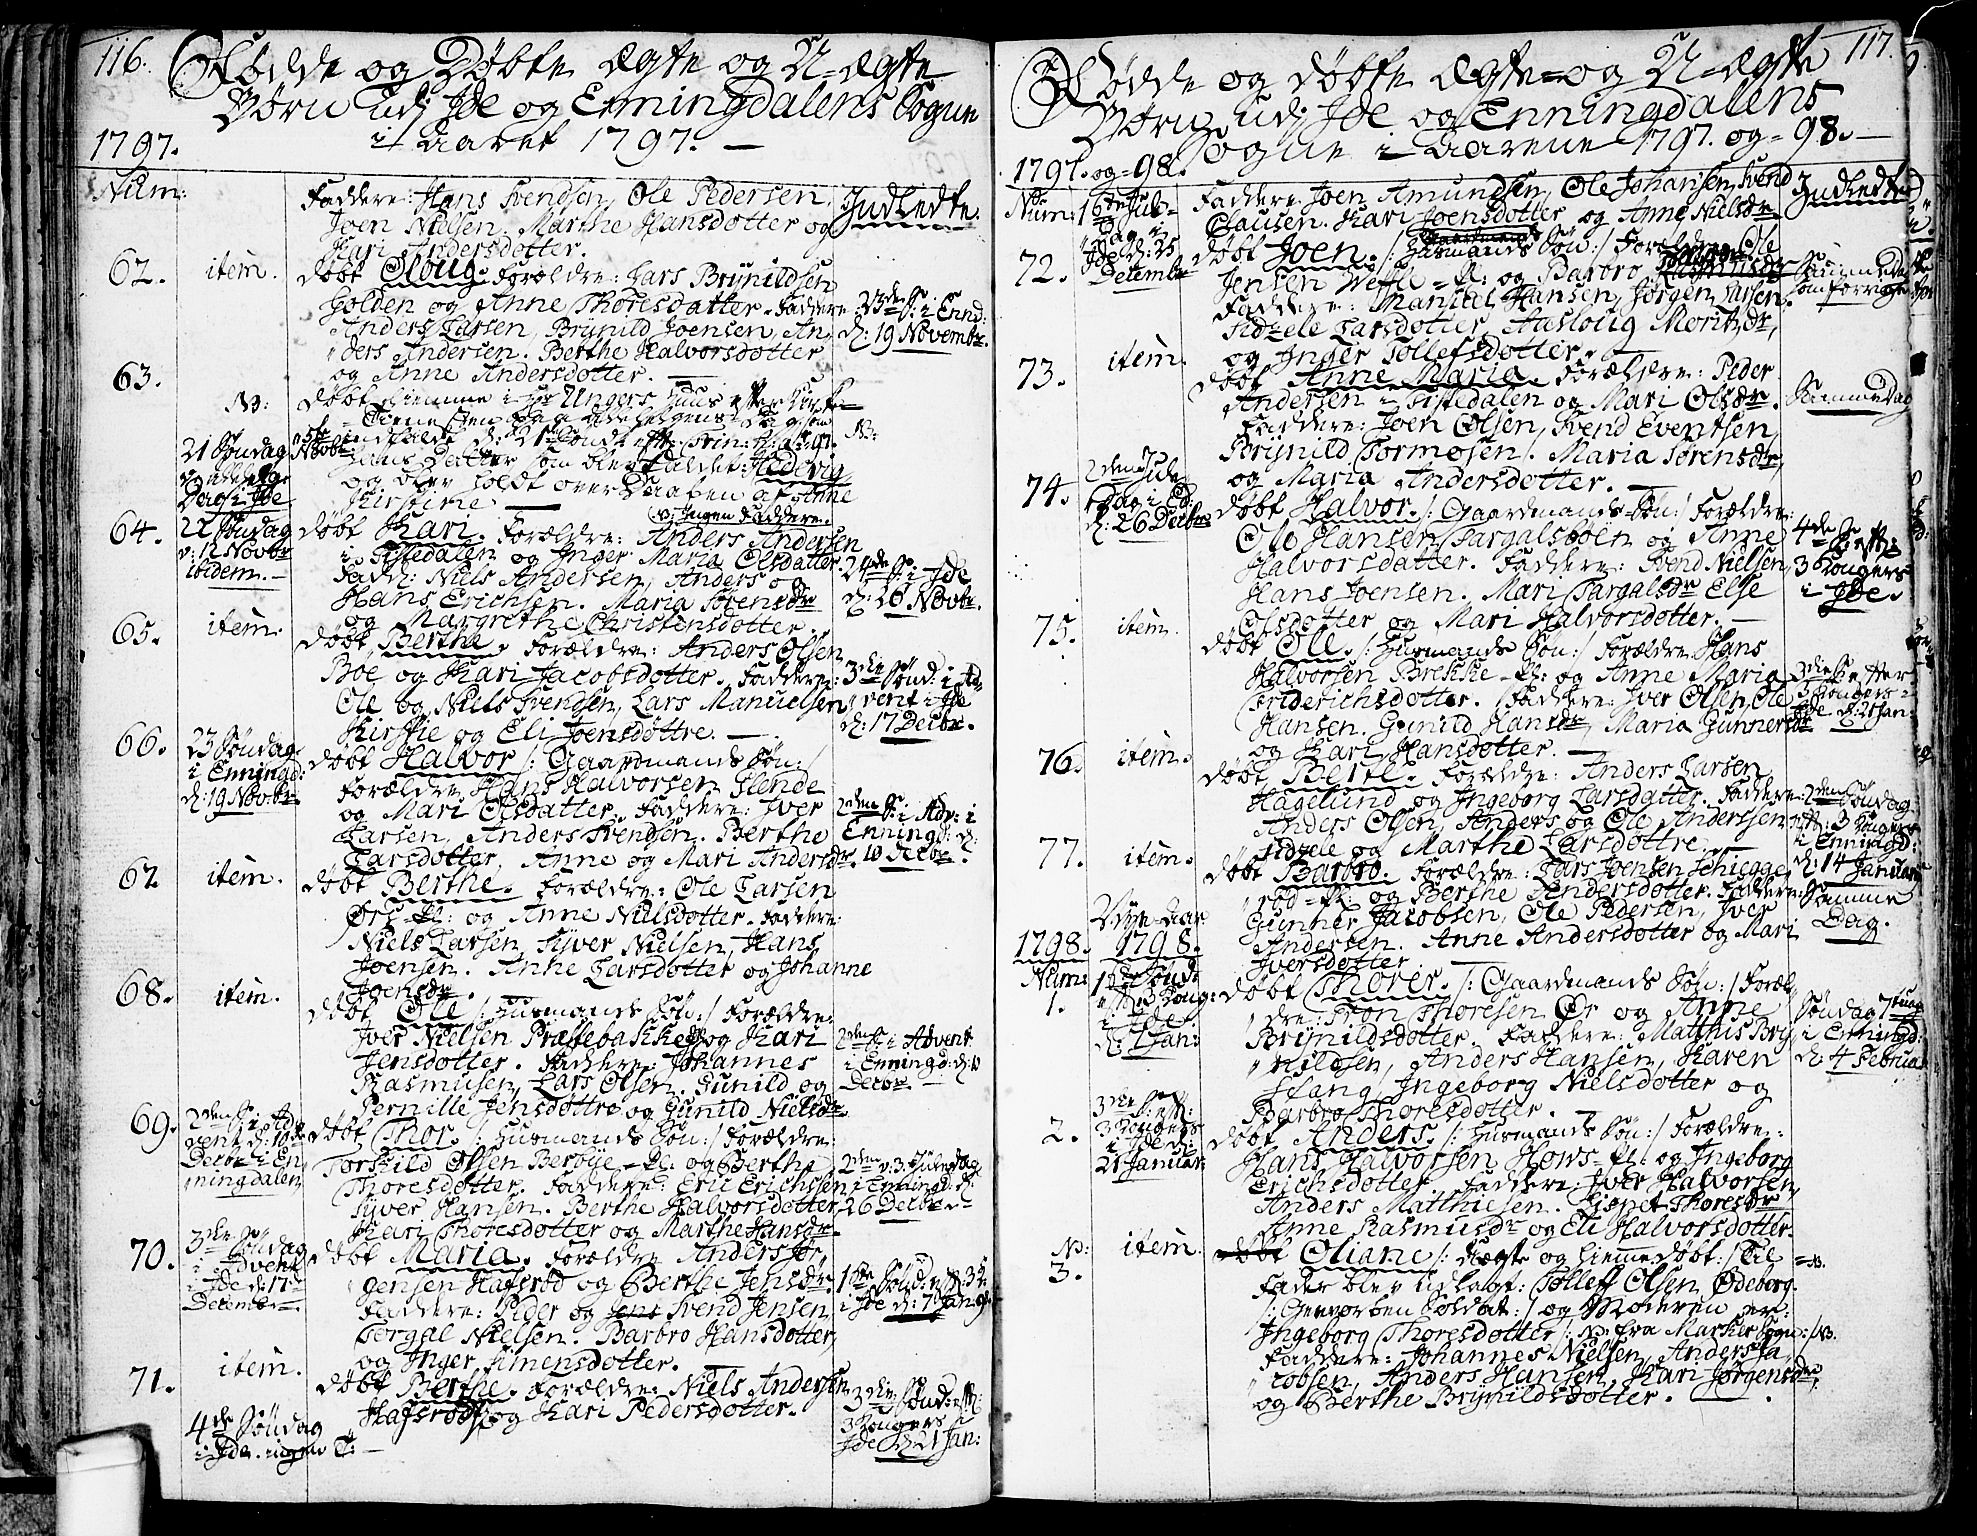 116.
Fødde og Døbte Ægte og U-ægte
Børn udj Jde og Enningdalens Sogne
i Aaret 1797. —
1797.
Num:
Faddere: Hans Svendsen, Ole Pedersen,
Joen Nielsen. Marthe Hansdotter og
Kari Andersdotter.
Jndledte.
62. item. døbt Oloug. Forældre: Lars Brynildsen
Golden og Anne Thoresdatter. Faddere
Anders Larsen, Brynild Joensen, An-
ders Andersen. Berthe Halvorsdotter
og Anne Andersdotter. —
23de S: i Ennd:
d: 19 Novembr.
63.
NB:
21 Søndag
Dag i Jde
5te Novbr
døbt hiemme i Hr Ungers Huus efter
indfaldt d: 21 Søndag eft: Trin:
Hans Datter som blev kaldet: Hedevig
og blev holdt over Daaben af Anne
Kirstine —
NB: Jngen Faddere.
NB:
64. 22 Søndag
d: 12 Novbr
ibidem. —
døbt Kari. Forældre: Anders Andersen
i Tistedalen og Jnger Maria Olsdatter.
Fadd: Niels Andersen, Anders og
Hans Erichsen. Maria Sørensdr
og Margrethe Christensdotter.
24de S: i Jde
d: 26 Novbr.
65. item. døbt Berthe. Forældre: Anders Olsen
Boe og Kari Jacobsdotter. Faddere:
Ole og Niels Svendsen, Lars Manuelsen
Kirstie og Eli Joensdøttre. —
3die Sønd: i Ad-
vent i Jde
d: 17 Decbr.
66. 23 Søndag
i Enningd:
d: 19 Novbr.
døbt Halvor /: Gaardmands Søn:/
Forældre Hans Halvorsen Slende
og Mari Olsdatter. Faddere: Jver
Larsen, Anders Svendsen. Berthe
Larsdotter, Anne og Mari Andersdr.
2den S: i Adv: i
Enningd: d:
10 Decbr.
67. item. døbt Berthe. Forældre: Ole Larsen
Ørs-Pl: og Anne Nielsdotter. Faddere:
Niels Larsen, Syver Nielsen, Hans
Joensen. Anne Larsdotter og Johanne
Joensdr. —
68. item. døbt Ole /: Husmands Søn:/ Forældre:
Jver Nielsen Præstebakke og Kari
Jensdotter. Faddere: Johannes
Rasmusen, Lars Olsen. Gunild og
Pernille Jensdøttre og Gunild Nielsdr.
2den S: i Advent
i Enningd: d: 10
Decbr —
69. 2den S: i Ad-
vent d: 10de
Decbr i En-
ningdalen
døbt Thor. /: Husmands Søn:/ Forældre:
Torkild Olsen Berbye-Pl: og Berthe
Thoresdotter. Faddere: Eric Erichsen,
Syver Hansen. Berthe Halvorsdotter,
Kari Thoresdotter og Marthe Hansdr.
2den v: 3. Juledag
i Enningd: d:
26 Decbr. —
70. 3die Søndag
i Advent
i Jde d: 17de
Decembr.
døbt Maria. Forældre Anders Jør-
gensen Hafsrød og Berthe Jensdr.
Faddere: Peder og Svend Jensen,
Torgal Nielsen. Barbro Hansdotter,
og Jnger Simensdotter. —
1ste Sønd: eft: 3 K:
i Jde d: 7 Jan:
71. item. døbt Berthe. Forældre: Niels Andersen
Hafsrød og Kari Pedersdotter.
4de Søndag
i Jde. ingen T: —
3die Sønd: eft:
3 Kongers
Jde d: 21 Jan:
117.
Fødde og døbte Ægte- og U-ægte
Børn udj Jde og Enningdalens
Sogne i Aarene 1797. og -98. —
1797. og -98.
Num: 1ste Jule-
dag i
Jde d: 25
Decembr
Faddere: Joen Amundsen, Ole Johansen, Svend
Clausen. Kari Joensdotter og Anne Nielsdr
Jndledte
72. døbt Joen. /: Husmands Søn:/ Forældre Ole
Jensen Weffle-Pl: og Barbro
Faddere: Mansial Hansen, Jørgen Larsen.
Sidzele Larsdotter, Aasloug Moritzdr,
og Jnger Tollefsdotter. —
Samme Dag
som forrige
73. item. døbt Anne Maria. Forældre: Peder
Andersen i Tistedalen og Mari Olsdr.
Faddere: Joen Olsen, Svend Eventsen,
Brynild Tormosen. Maria Sørensdr,
og Maria Andersdotter. —
Samme Dag
74. 2den Jule
Dag i E:
d: 26 Decbr
døbt Halvor. /: Gaardmands-Søn:/ Forældre:
Ole Hansen Targalsbøen og Anne
Halvorsdatter. Faddere: Svend Nielsen,
Hans Joensen. Mari Targalsdr Else
Olsdotter og Mari Halvorsdotter. —
4de S: eft:
3 Kongers
i Jde.
75. item. døbt Ole. /: Husmands Søn:/ Forældre Hans
Halvorsen Brekke-Pl: og Anne Maria
Friderichsdotter. Faddere: Jver Olsen, Ole
Hansen. Gunild Hansdr, Maria Gunnersdr
og Kari Hansdotter. —
3die S: efter
3 Kongers i
Jde d: 21 Jan:
76. item. døbt Bertl. Forældre: Anders Larsen
Hagelund og Jngeborg Larsdatter. Faddere:
Anders Olsen, Anders og Ole Anderssen,
Sidzele og Marthe Larsdøttre. —
2den Søndag
eft: 3 Kongers
i Enningd:
d: 14 Januar
77. item. døbt Barbro. Forældre: Lars Joensen Schiegge-
rød-Pl: og Berthe Andersdotter. Faddere:
Gunner Jacobsen, Ole Pedersen, Jver
Andersen. Anne Andersdotter og Mari
Jversdotter. —
Samme
Dag.
Nyt-Aar
1798. 1798.
Num:
1. 1ste Sønd:
eft: 3 Kong:
i Jde
d: 7 Jan:
døbt Thorer. /: Gaardmands Søn:/ Foræl-
dre: Tron Thoresen Ør og Anne
Brynildsdotter. Faddere: Matthis Bry-
nildsen, Anders Hansen, Karen
Hang, Jngeborg Nielsdotter og
Barbro Thoresdotter. —
Søndag 7tuag
i Enningd:
d: 4 Februa
2. 3die S: eft:
3 Kongers
i Jde d:
21 Januar:
døbt Anders. /: Husmands Søn:/ Forældre:
Hans Halvorsen Hows-Pl: og Jngeborg
Erichsdotter. Faddere: Jver Halvorsen,
Anders Matthiesen. Lispet Thoresdr
Anne Rasmusdr og Eli Halvorsdotter.
NB:
3. item. døbt Oliane /: Uægte og hiemmedøbt:/ Til
Fader blev udlagt: Tolleff Olsen Ødeborg.
/: Gevorben Soldat:/ og Moderen er:
Jngeborg Thoresdotter /: NB: fra Marker Sogn:/ NB.
Faddere: Johannes Nielsen, Anders Ja-
cobsen, Anders Hansen, Kari Jørgensdr,
og Berthe Brynildsdotter. —